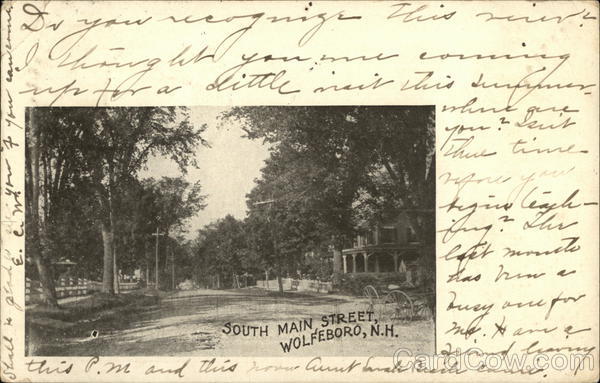 Do you recognize this view?
I thought you were coming
up for a little visit this summer-
where are
you? Isn't
there time
before you
begin teach-
ing? The
last month
has been a
busy one for
me. Have a
leaving
this P.M. and this noon Aunt
Shall be glad to
E. C. W.
if you can come
SOUTH MAIN STREET,
WOLFEBORO, N.H.
CardCow.com